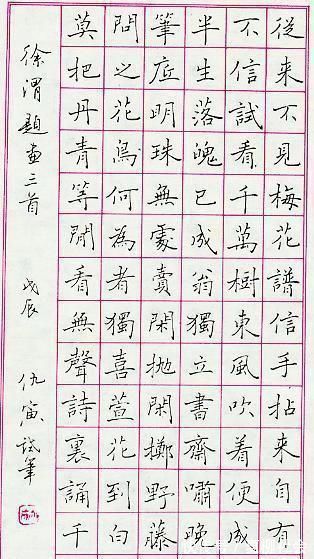 從来不見梅花譜信手拈来自有
不信試看千萬樹東風吹着便成
半生落魄已成翁獨立書齋嘯晚
筆底明珠無處賣閑拋閑擲野藤
問之花鳥何為者獨喜萱花到白
莫把丹青等閒看無聲詩裏誦千
徐渭題畫三首 戊辰 仇寅試筆